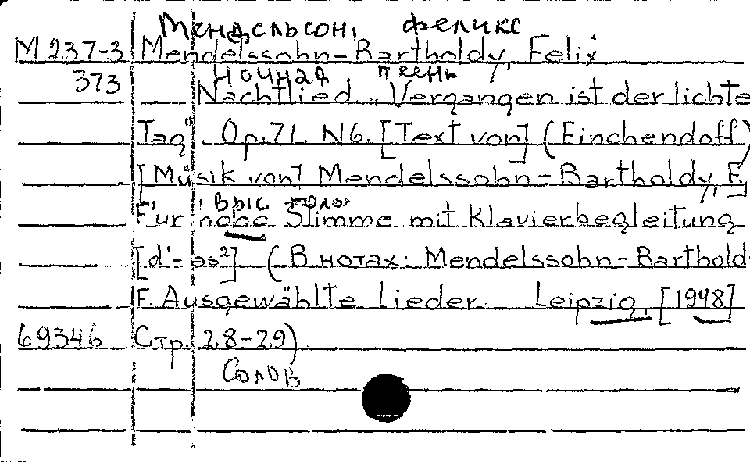 Мендельсон, Феликс
М 237-3 Mendelssohn-Bartholdy, Felix
Ночная песнь
373 Nachtlied „Vergangen ist der lichte
Tag". Op.71. N6. [Text von] (Einchendoff)
[Musik von] Mendelssohn-Bartholdy, F.
выс голос
Für hohe Stimme mit Klavierbegleitung
[d'-as²] (В нотах: Mendelssohn-Barthold
F. Ausgewählte Lieder. Leipzig, [1948]
69346 Стр. 28-29)